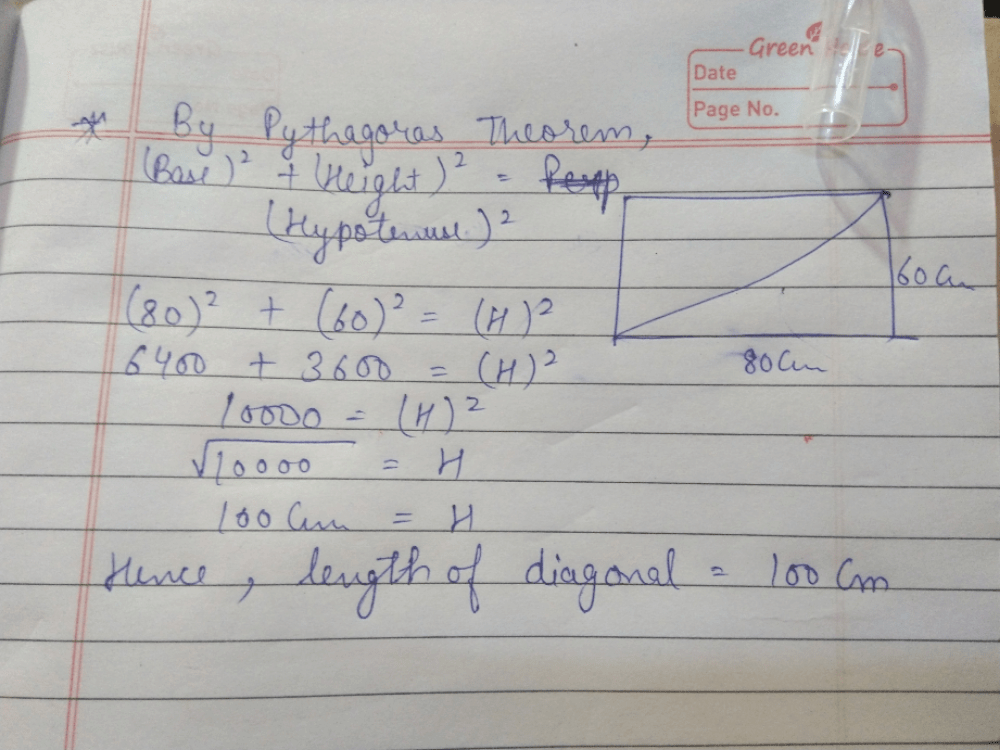 Green
Date
Page No.
* By Pythagoras Theorem,
(Base)² + (Height)² =
(Hypotenuse)²
60 Cm
80 Cm
(80)² + (60)² = (H)²
6400 + 3600 = (H)²
10000 = (H)²
√10000 = H
100 Cm = H
Hence, length of diagonal = 100 Cm